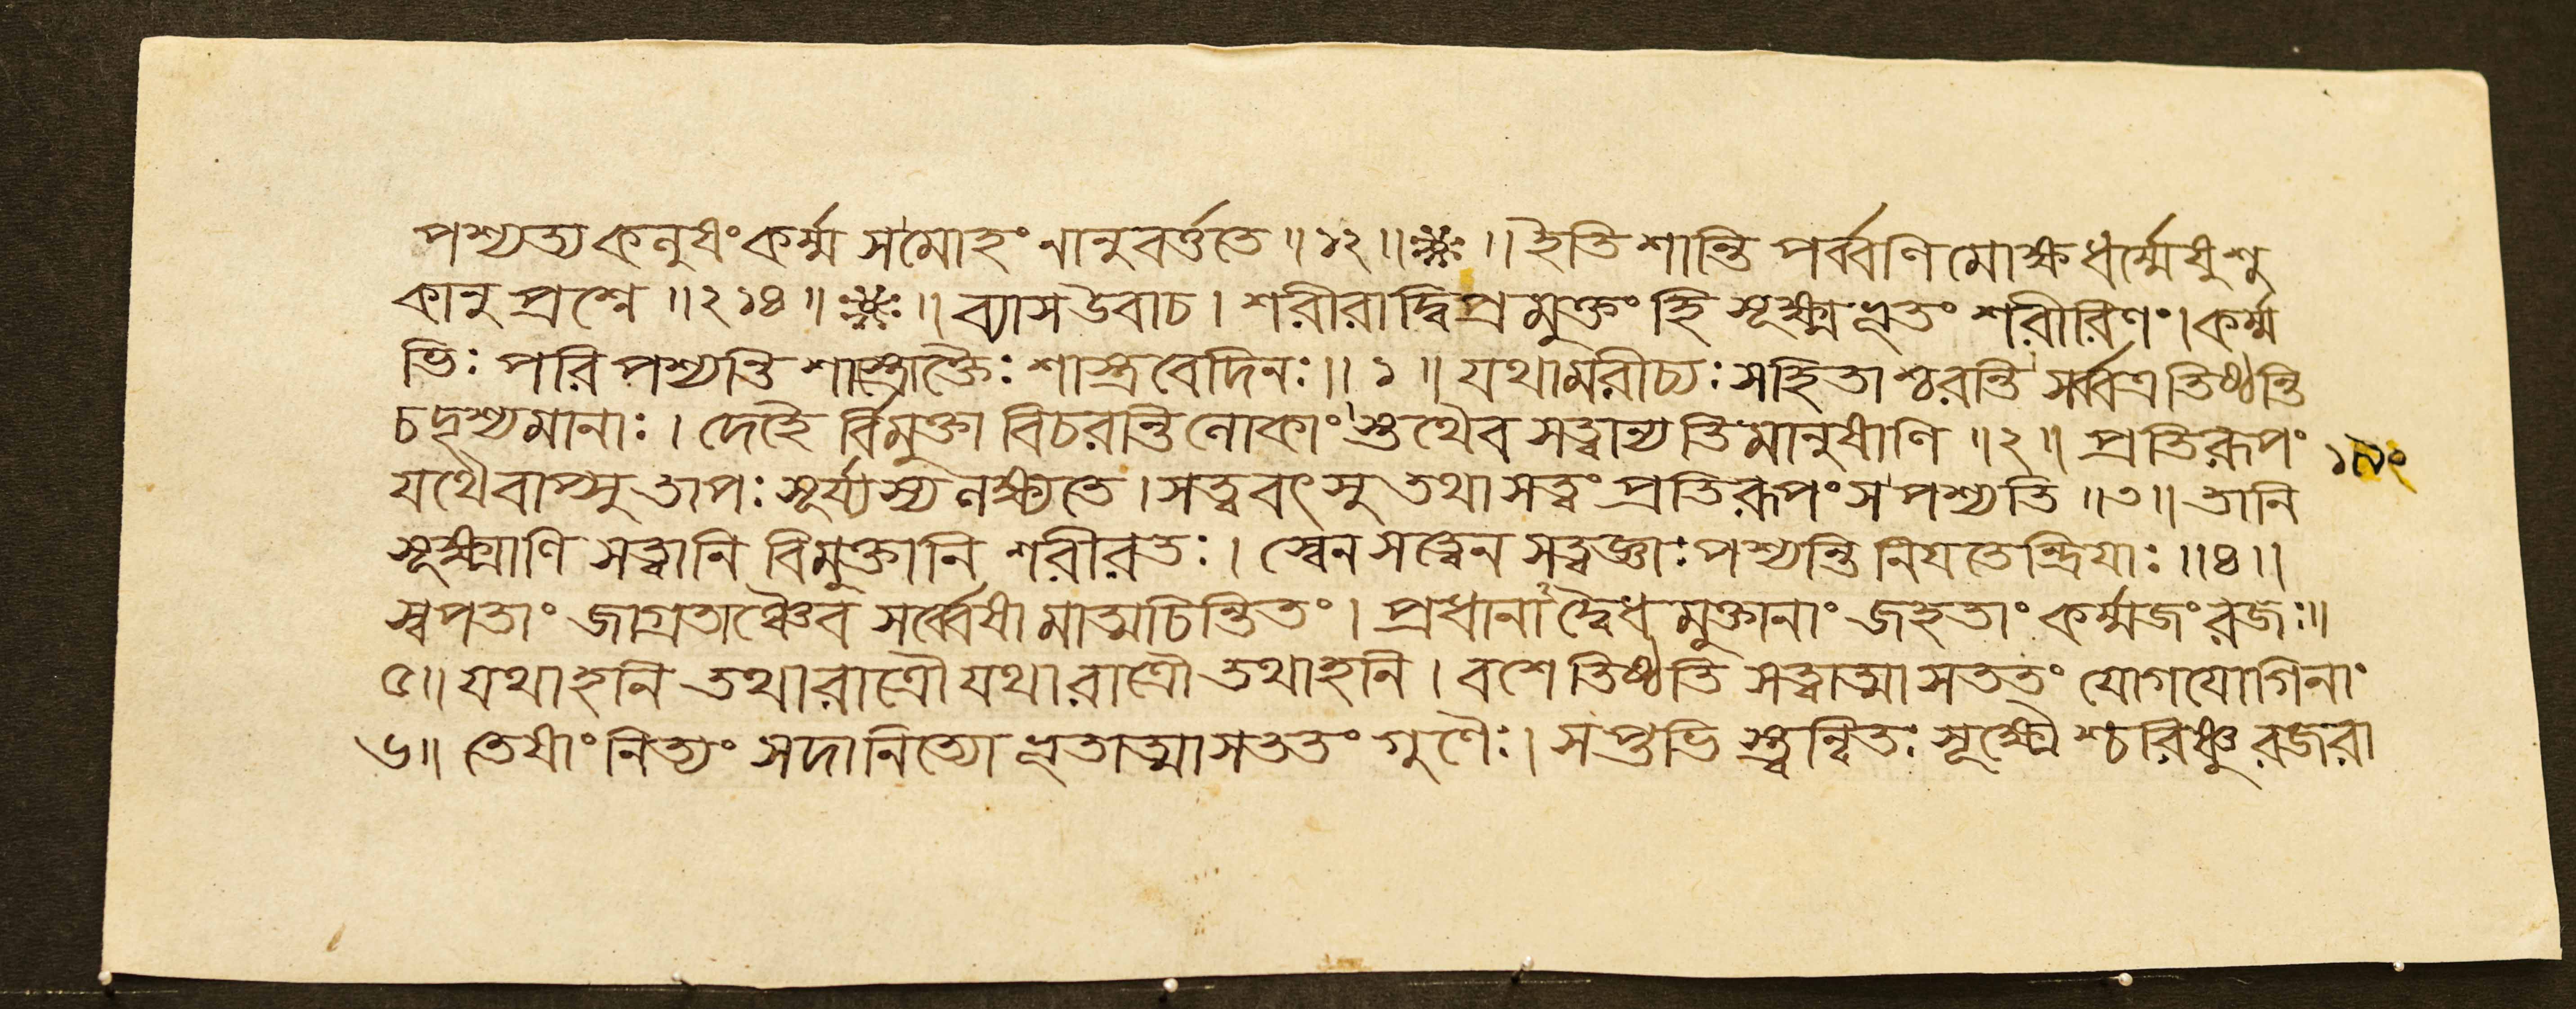 পশ্যত্যকলুষং কর্ম্ম স মোহং নানুবর্ত্ততে ॥ ১২ ॥ ॥ ইতি শান্তি পর্ব্বণি মোক্ষ ধর্ম্মেষু শু
কানু প্রশ্নে ॥ ২১৪ ॥ ॥ ব্যাস উবাচ । শরীরাদ্বিপ্রমুক্তং হি সূক্ষ্ম ভূতং শরীরিণং । কর্ম্ম
ভিঃ পরি পশ্যন্তি শাস্ত্রোক্তৈঃ শাস্ত্র বেদিনঃ ॥ ১ ॥ যথা মরীচ্যঃ সহিতাশ্চরন্তি সর্ব্বত্র তিষ্ঠন্তি
চ দৃশ্যমানাঃ । দেহৈ র্বিমুক্তা বিচরন্তি লোকাং স্তথৈব সত্ত্বান্যতি মানুষাণি ॥ ২ ॥ প্রতিরূপং
যথৈবাপ্সু তাপঃ সূর্য্যস্য লক্ষ্যতে । সত্ত্ববৎসু তথা সত্ত্বং প্রতিরূপং স পশ্যতি ॥ ৩ ॥ তানি
সূক্ষ্মাণি সত্ত্বানি বিমুক্তানি শরীরতঃ । স্বেন সত্ত্বেন সত্ত্বজ্ঞাঃ পশ্যন্তি নিযতেন্দ্রিযাঃ ॥ ৪ ॥
স্বপতাং জাগ্রতাঞ্চৈব সর্ব্বেষা মাত্মচিন্তিতং । প্রধানাদ্বৈধ মুক্তানাং জহতাং কর্ম্মজং রজঃ ॥
৫ ॥ যথাহনি তথা রাত্রৌ যথা রাত্রৌ তথাহনি । বশে তিষ্ঠতি সত্ত্বাত্মা সততং যোগযোগিনাং
৬ ॥ তেষাং নিত্যং সদানিত্যো ভূতাত্মা সততং গুণৈঃ । সপ্তভি স্ত্বন্বিতঃ সূক্ষ্মৈ শ্চরিষ্ণু রজরা